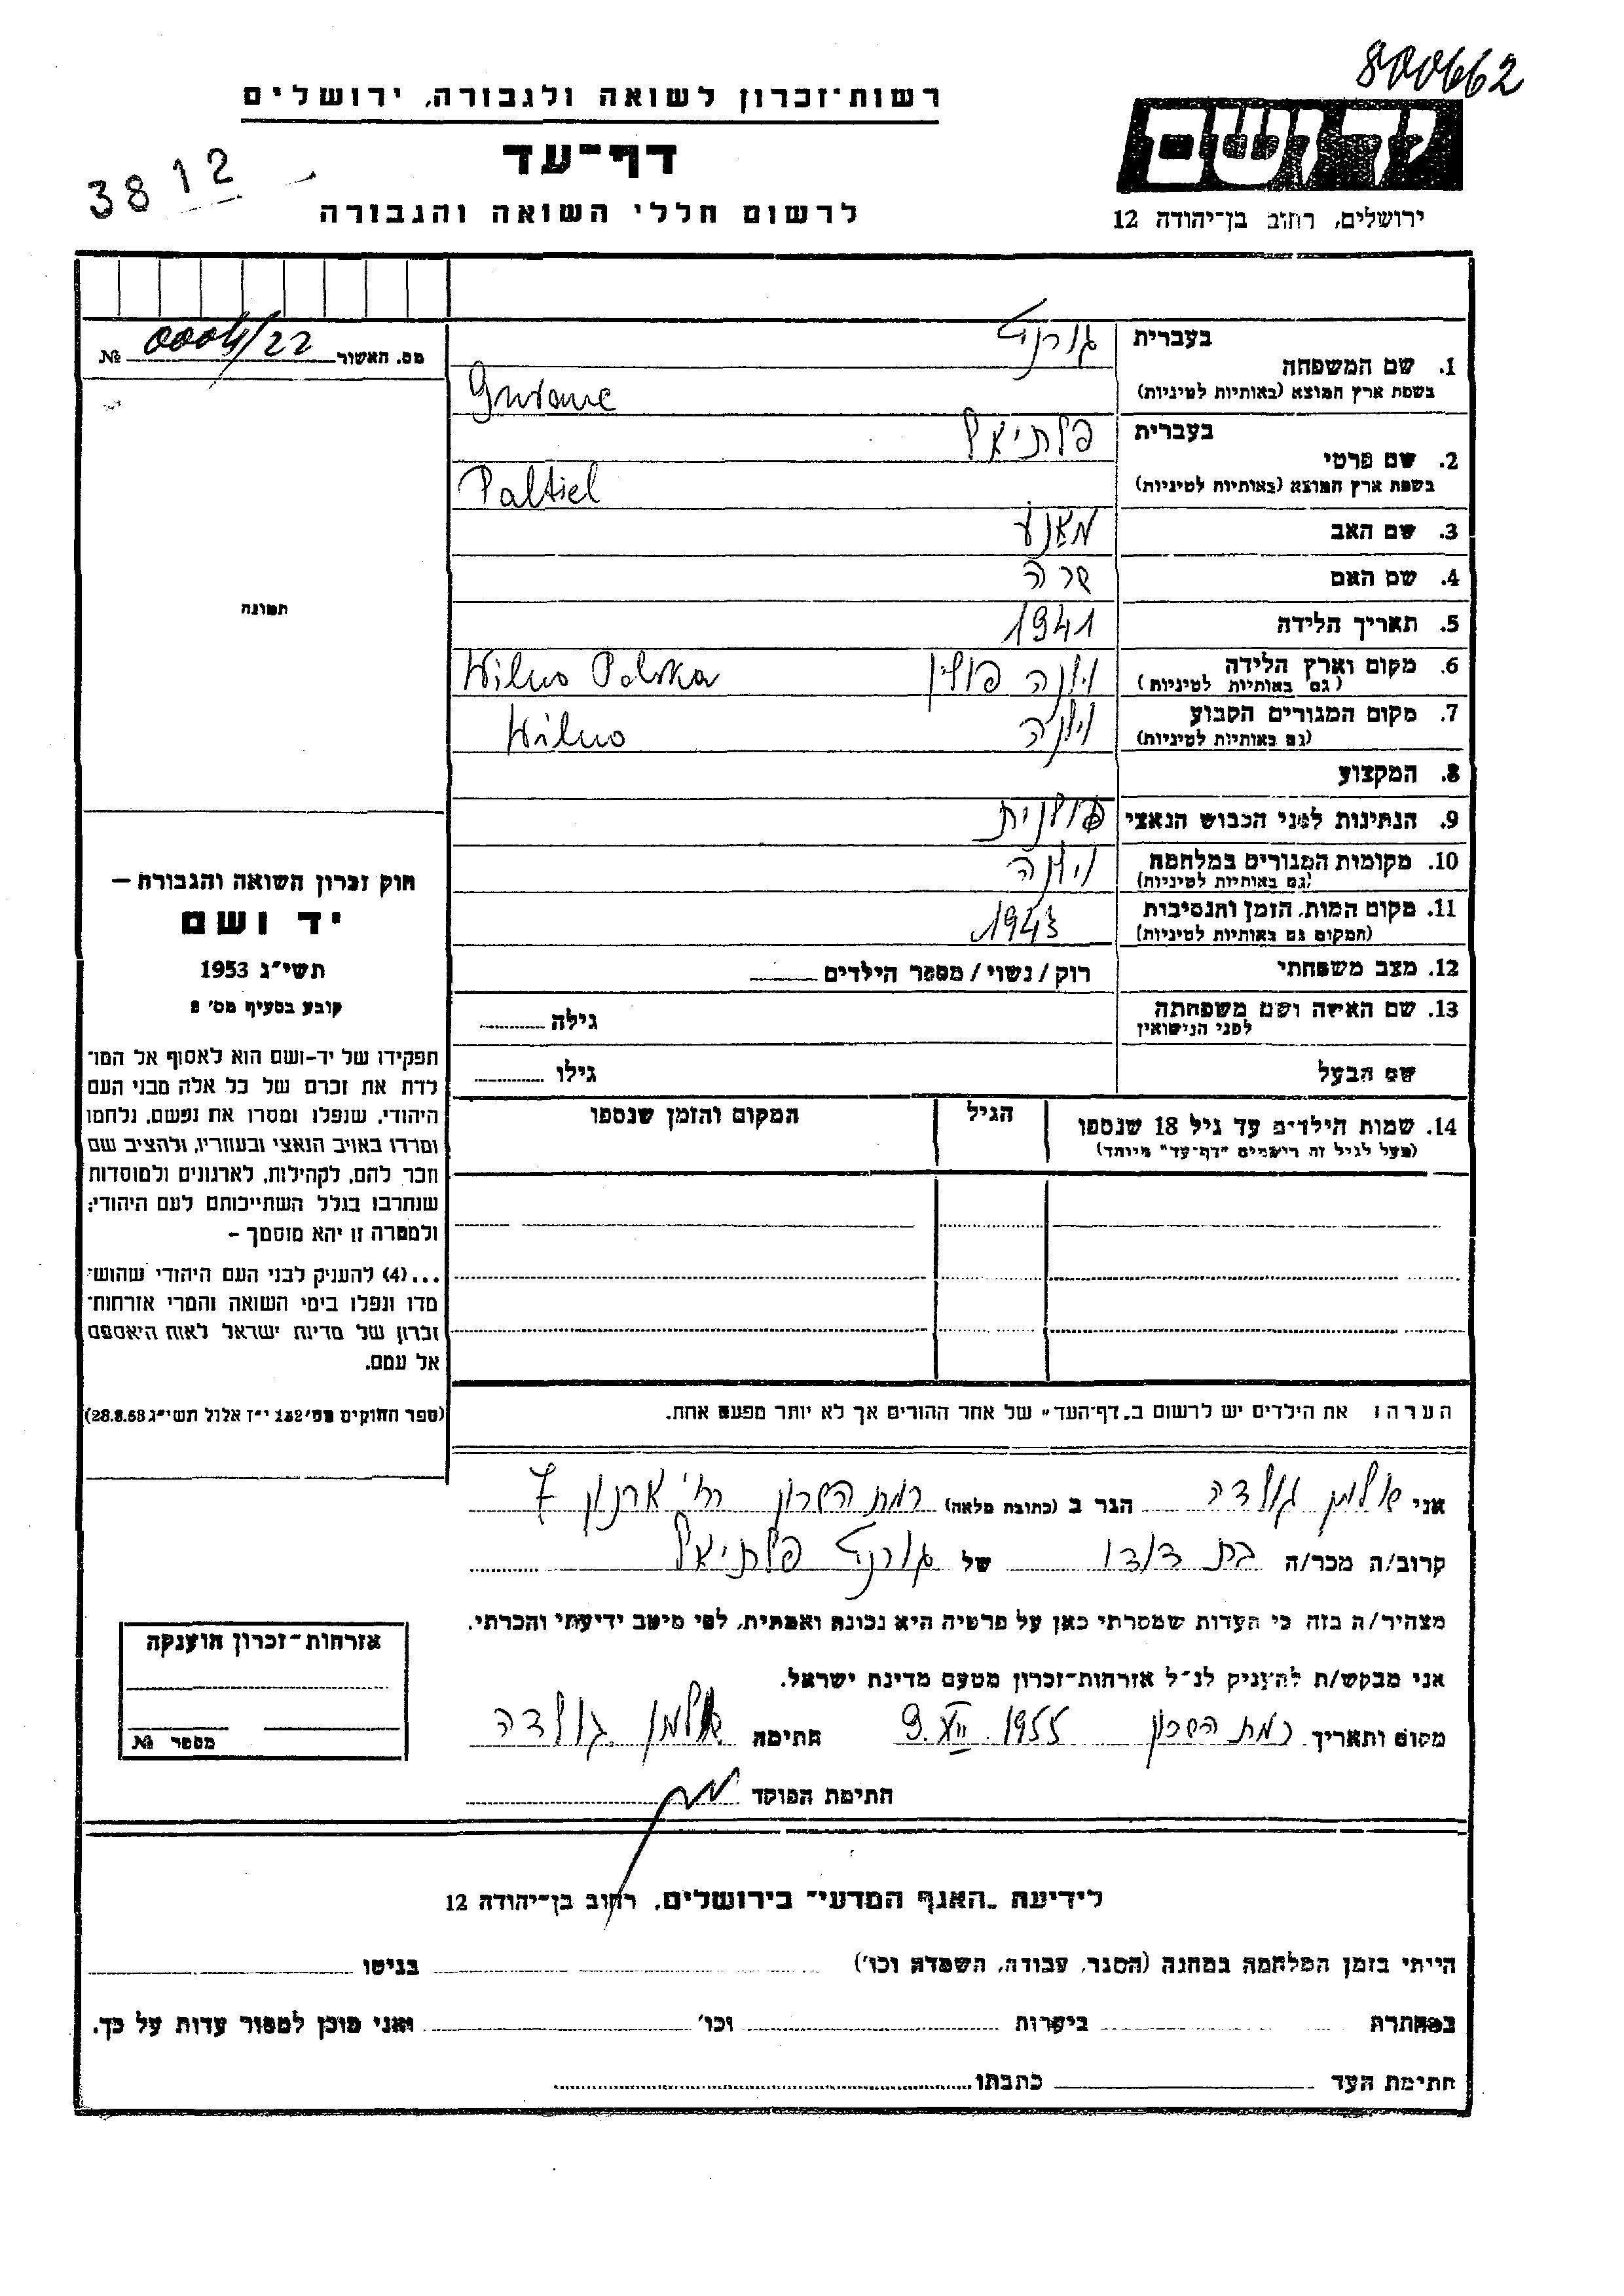 800662
רשות־זכרון לשואה ולגבורה, ירושלים
דף־עד
לרשום חללי השואה והגבורה
3812
יד ושם
ירושלים, רחוב בן־יהודה 12
מס. האשור 0004/22 №
תמונה
חוק זכרון השואה והגבורה –
יד ושם
תשי״ג 1953
קובע בסעיף מס׳ 2
תפקידו של יד-ושם הוא לאסוף אל המו־
לדת את זכרם של כל אלה מבני העם
היהודי, שנפלו ומסרו את נפשם, נלחמו
ומרדו באויב הנאצי ובעוזריו, ולהציב שם
וזכר להם, לקהילות, לארגונים ולמוסדות
שנחרבו בגלל השתייכותם לעם היהודי;
ולמטרה זו יהא מוסמך –
...(4) להעניק לבני העם היהודי שהוש־
מדו ונפלו בימי השואה והמרי אזרחות־
זכרון של מדינת ישראל לאות היאספם
אל עמם.
(ספר החוקים מס׳ 132 י״ז אלול תשי״ג 28.8.53)
1. שם המשפחה בעברית
בשפת ארץ המוצא (באותיות לטיניות)
2. שם פרטי בעברית פלתיאל
בשפת ארץ המוצא (באותיות לטיניות) Paltiel
3. שם האב
4. שם האם שרה
5. תאריך הלידה 1941
6. מקום וארץ הלידה וילנה פולין Wilno Polska
(גם באותיות לטיניות)
7. מקום המגורים הקבוע וילנה Wilno
(גם באותיות לטיניות)
8. המקצוע
9. הנתינות לפני הכבוש הנאצי פולנית
10. מקומות המגורים במלחמה וילנה
(גם באותיות לטיניות)
11. מקום המות, הזמן והנסיבות 1943
(המקום גם באותיות לטיניות)
12. מצב משפחתי רוק/נשוי/מספר הילדים
13. שם האשה ושם משפחתה גילה
לפני הנישואין
שם הבעל גילו
14. שמות הילדים עד גיל 18 שנספו הגיל המקום והזמן שנספו
(מעל לגיל זה רישמים ״דף־עד״ מיוחד)
הערה: את הילדים יש לרשום ב„דף־העד״ של אחד ההורים אך לא יותר מפעם אחת.
אני אלמן גולדה הגר ב (כתובת מלאה) רמת השרון רח׳ ארנון 7
קרוב/ה מכר/ה בת דודו של פלתיאל
מצהיר/ה בזה כי העדות שמסרתי כאן על פרטיה היא נכונה ואמתית, לפי מיטב ידיעתי והכרתי.
אני מבקש/ת להעניק לנ״ל אזרחות־זכרון מטעם מדינת ישראל.
מקום ותאריך רמת השרון 9.XII.1955 חתימה אלמן גולדה
חתימת הפוקד
אזרחות־זכרון הוענקה
מספר №
לידיעת „האגף המדעי״ בירושלים, רחוב בן־יהודה 12
הייתי בזמן המלחמה במחנה (הסגר, עבודה, השמדה וכו׳) בגיטו
במחתרת ביערות וכו׳ ואני מוכן למסור עדות על כך.
חתימת העד כתבתו